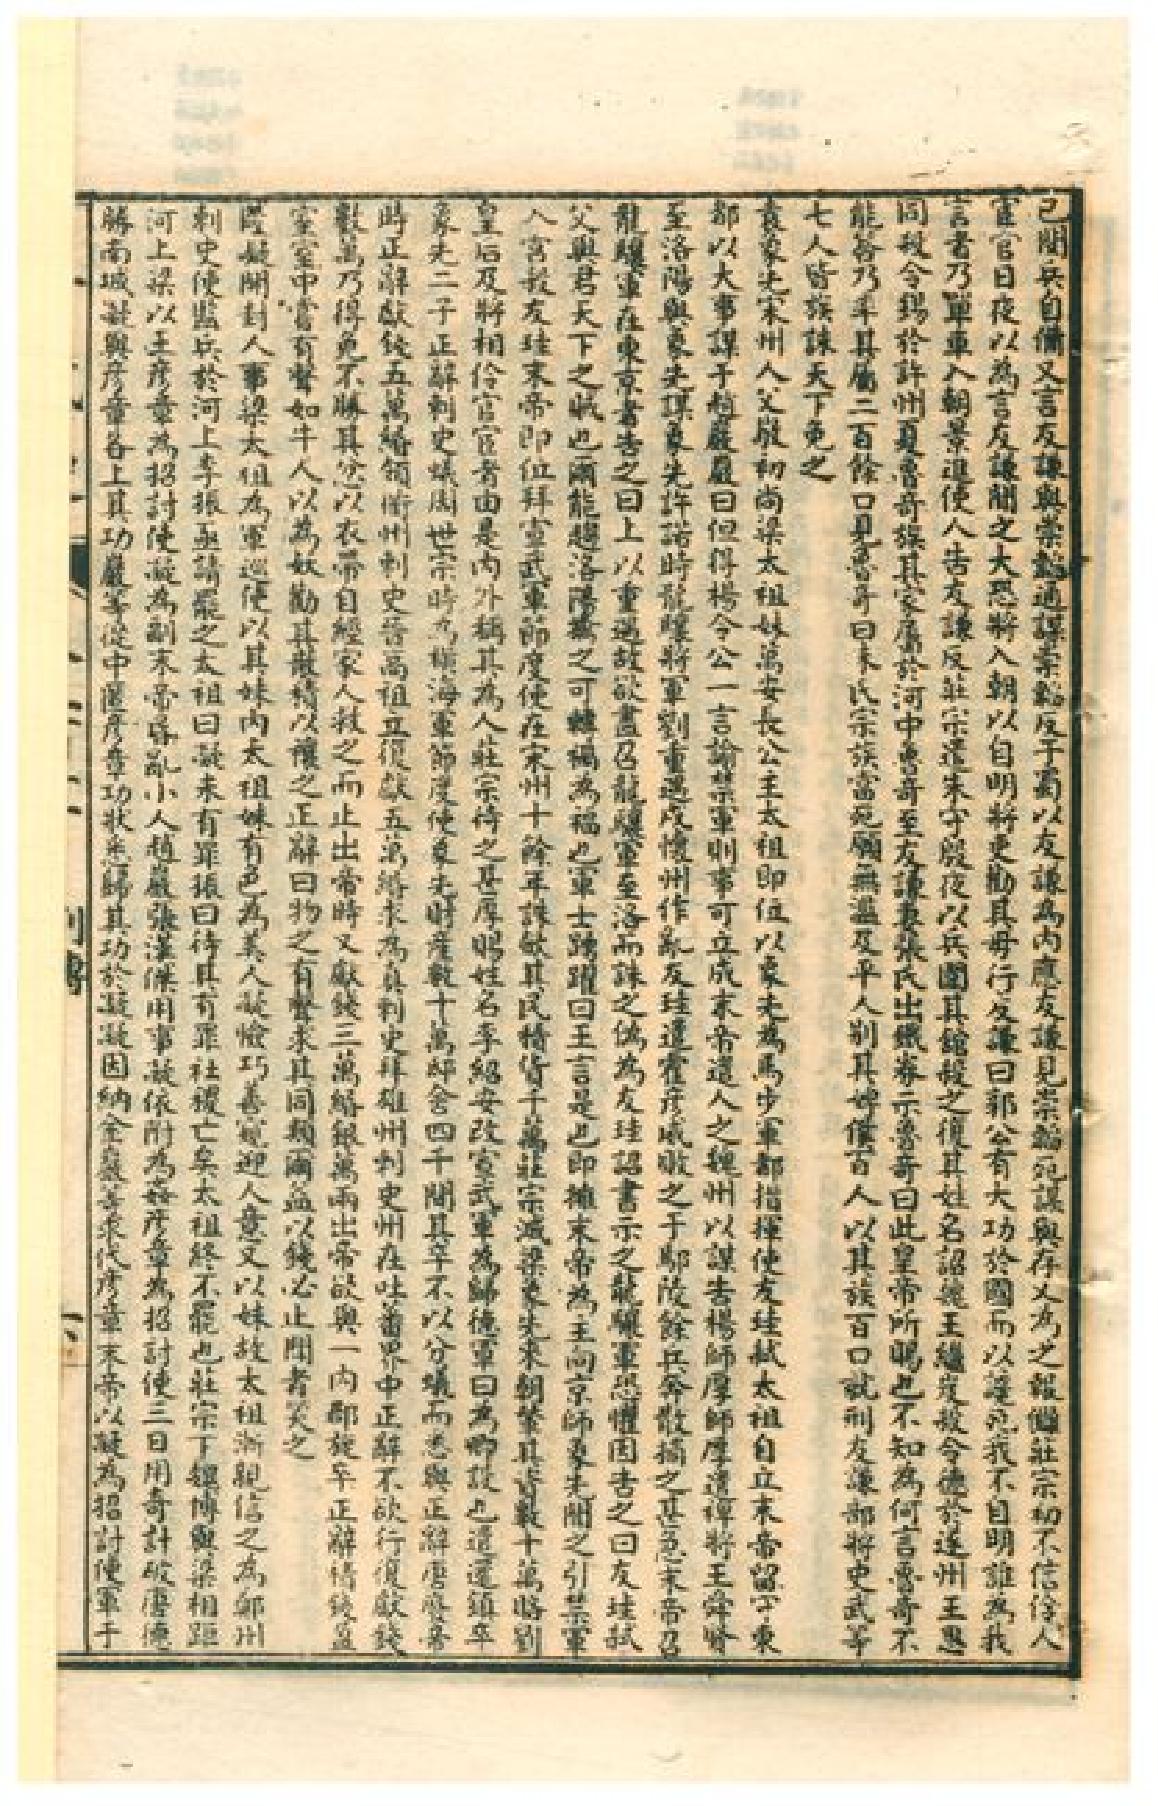 已閱兵自備又言友謙與崇韜通謀崇韜反于蜀以友謙為內應友謙見崇韜死謀與存乂為之報讎莊宗初不信伶人
宦官日夜以為言友謙聞之大恐將入朝以自明將吏勸其毋行友謙曰郭公有大功於國而以讒死我不自明誰為我
言者乃單車入朝景進使人告友謙反莊宗遣朱守殷夜以兵圍其館殺之復其姓名詔魏王繼岌殺令德於遂州王思
同殺令錫於許州夏魯奇族其家屬於河中魯奇至友謙妻張氏出鐵券示魯奇曰此皇帝所賜也不知為何言魯奇不
能答乃率其屬二百餘口見魯奇曰朱氏宗族當死願無濫及平人別其婢僕百人以其族百口就刑友謙部將史武等
七人皆族誅天下冤之
袁象先宋州人父敬初尚梁太祖妹萬安長公主太祖即位以象先為馬步軍都指揮使友珪弒太祖自立末帝留守東
都以大事謀于趙巖巖曰但得楊令公一言諭禁軍則事可立成末帝遣人之魏州以謀告楊師厚師厚遣裨將王舜賢
至洛陽與象先謀象先許諾時龍驤將軍劉重遇戍懷州作亂友珪遣霍彥威敗之于鄢陵餘兵奔散捕之甚急末帝召
龍驤軍在東京者告之曰上以重遇故欲盡召龍驤軍至洛而誅之偽為友珪詔書示之龍驤軍恐懼因告之曰友珪弒
父與君天下之賊也爾能趨洛陽擒之可轉禍為福也軍士踴躍曰王言是也即擁末帝為主向京師象先聞之引禁軍
入宮殺友珪末帝即位拜宣武軍節度使在宋州十餘年誅斂其民積貨千萬莊宗滅梁象先來朝輦其貲數十萬賂劉
皇后及將相伶官宦者由是內外稱其為人莊宗待之甚厚賜姓名李紹安改宣武軍為歸德軍曰為卿設也遣還鎮卒
象先二子正辭刺史㠖周世宗時為橫海軍節度使象先財產數十萬邸舍四千間其卒不以分㠖而悉與正辭唐廢帝
時正辭獻錢五萬緡領衢州刺史晉高祖立復獻五萬緡求為真刺史拜雄州刺史州在吐蕃界中正辭不欲行復獻錢
數萬乃得免不勝其忿以衣帶自經家人救之而止出帝時又獻錢三萬緡銀萬兩出帝欲與一內郡旋卒正辭積錢盈
室室中嘗有聲如牛人以為妖勸其散積以禳之正辭曰物之有聲求其同類爾益以錢必止聞者笑之
段凝開封人事梁太祖為軍巡使以其妹內太祖妹有色為美人凝憸巧善窺迎人意又以妹故太祖漸親信之為鄭州
刺史使監兵於河上李振亟請罷之太祖曰凝未有罪振曰待其有罪社稷亡矣太祖終不罷也莊宗下魏博與梁相距
河上梁以王彥章為招討使凝為副末帝昏亂小人趙巖張漢傑用事凝依附為姦彥章為招討使三日用奇計破唐德
勝南城凝與彥章各上其功巖等從中匿彥章功狀悉歸其功於凝凝因納金巖等求代彥章末帝以凝為招討使軍于
列傳